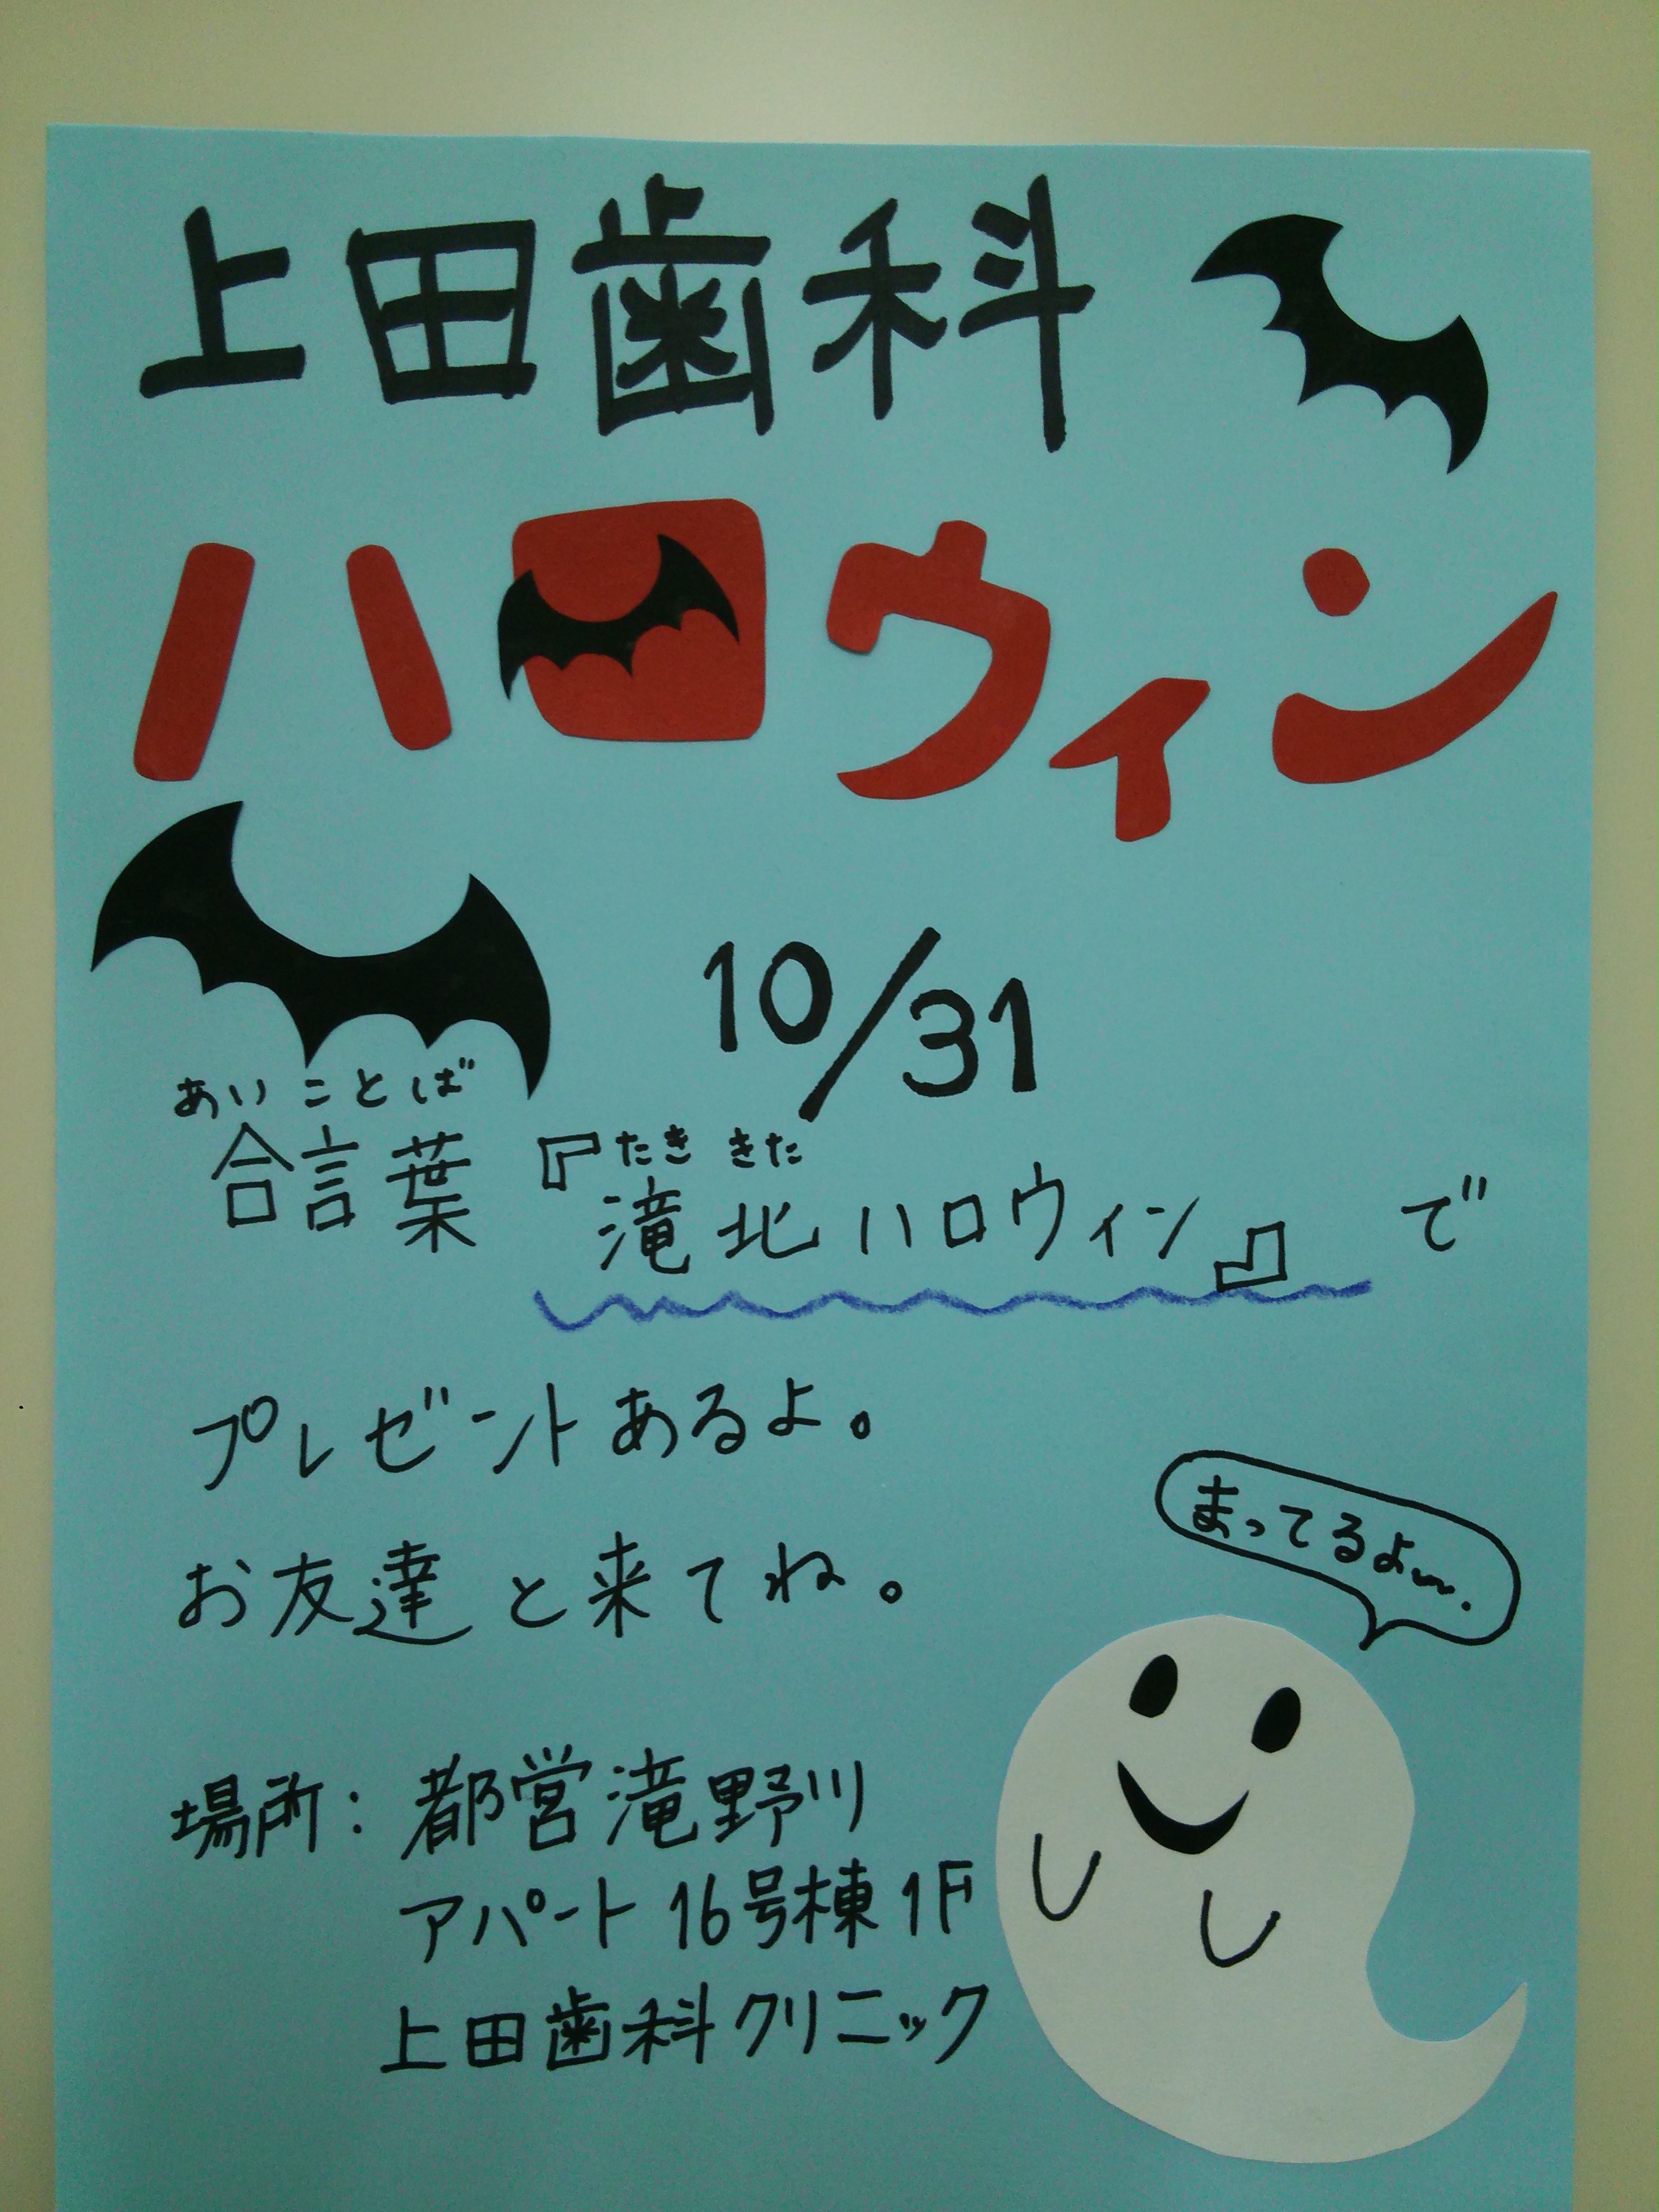 上田歯科
ハロウィン
10/31
あいことば
合言葉『滝北ハロウィン』で
たき きた
プレゼントあるよ。
お友達と来てね。
まってるよ〜.
場所:都営滝野川
アパート16号棟1F
上田歯科クリニック